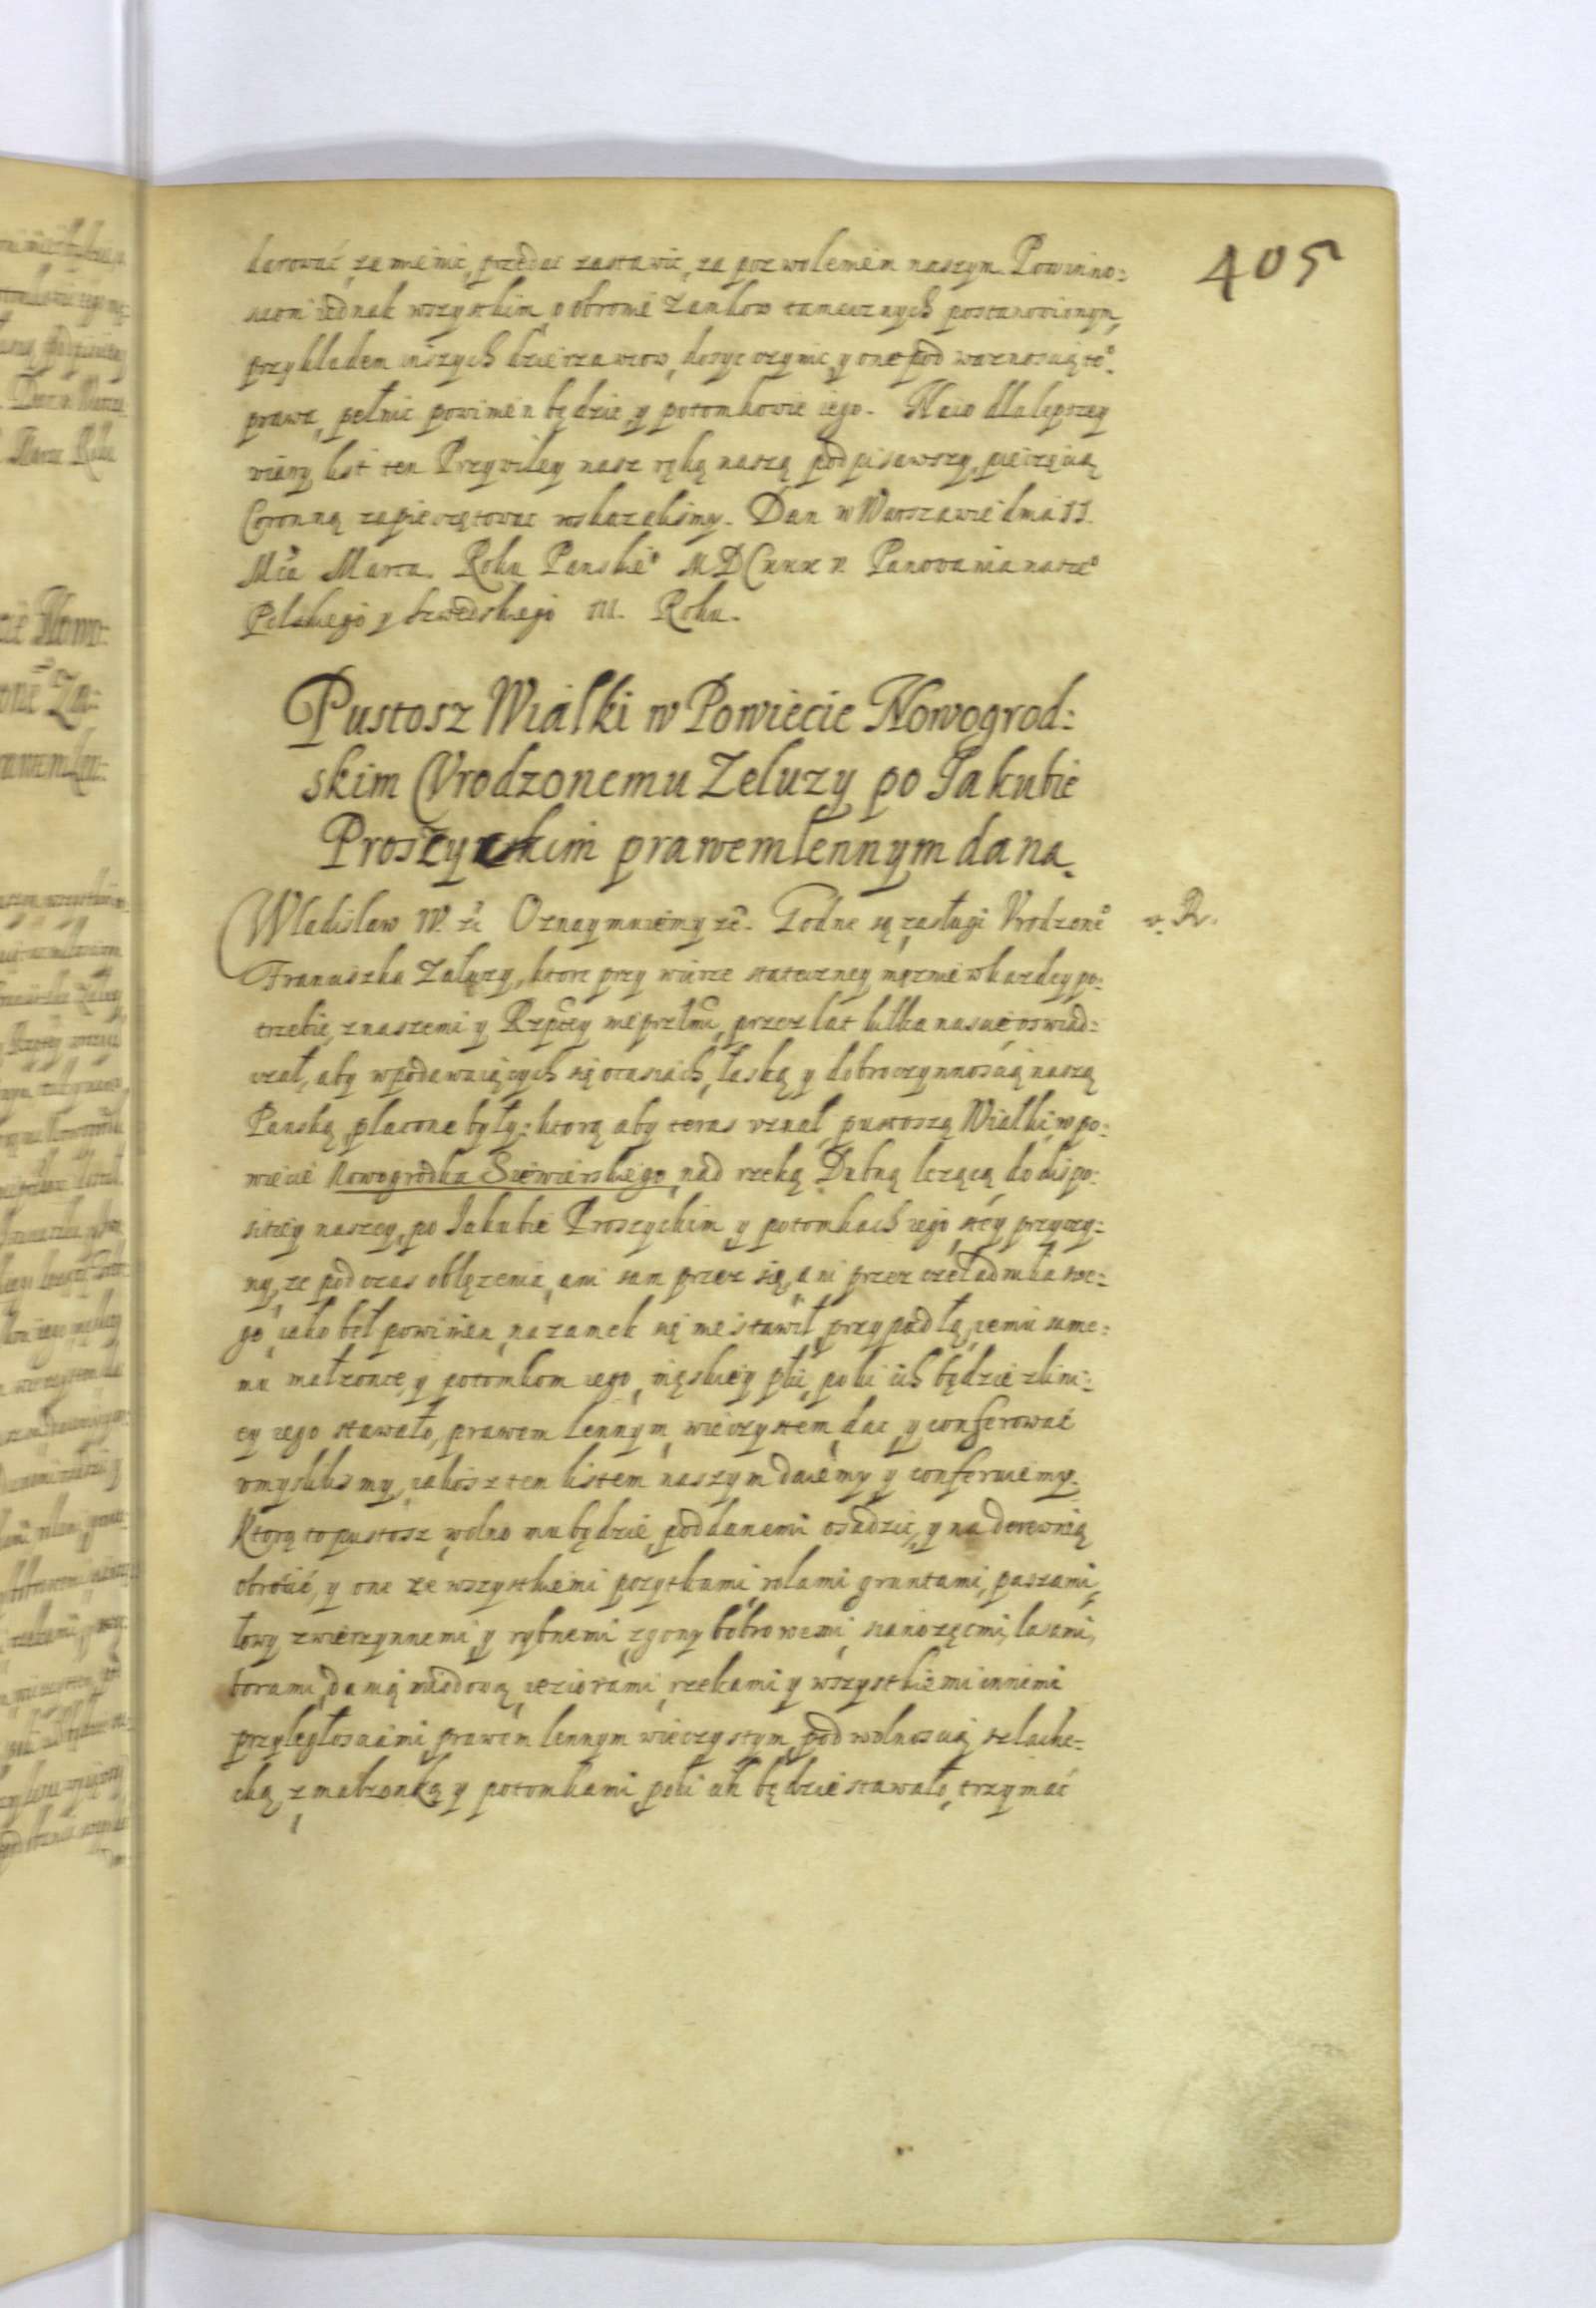 405
darować, zamienic, przedac zastawic, za pozwoleniem naszym. Powinno:
sciom iednak wszystkim, o obronie Zamkow tamecznych postanowionym,
przykładem inszych dzierzawcow, dosyc czynic, y one pod waznoscią te°
prawa, pełnic powinien będzie, y potomkowie iego. Naco dla lepszey
wiary list ten Przywiley nasz ręką naszą podpisawszy, pieczęcią
Coronną zapieczętowac roskazalismy. Dan w Warszawie dnia 11.
Mca Marca. Roku Panskie° MDCxxxv Panowania nasze°
Polskiego y Szwedskiego III. Roku.
Pustosz Wialki w Powiecie Nowogrod:
skim Vrodzonemu Zeluzy po Jakubie
Proszyckim prawem lennym dana.
Wladislaw IV. etc Oznaymuiemy etc. Godne są zasługi Vrodzone°
R.
Franciszka Załuzy, ktore przy wierze stateczney męznie w kazdey po:
trzebie, z naszemi y Rzptey nieprzłmi, przez lat kilka nascie, oswiad:
czał, aby w podawaiących się ocasiach, łaską y dobroczynnoscią naszą
Panską płacone były: ktorą aby teras vznał, pustoszą Wialki, w po:
wiecie Nowogrodka Siewierskiego, nad rzeką Dubną lezącą do dispo:
sitiey naszey, po Jakubie Proszyckim y potomkach iego, s tey przyczy:
ny, ze pod czas oblęzenia, ani sam przez się, ani przez czeladnika swe:
go, iako beł powinien, na zamek się nie stawił, przypadłą, iemu same:
mu małzonce, y potomkom iego, męskiey płci, poki ich będzie z lini:
ey iego stawało, prawem lennym, wieczystem, dac, y conferować
vmyslilismy, iakosz tem listem naszym daiemy y conferuiemy.
Ktorą to pustosz, wolno mu będzie, poddanemi osadzic, y na derewnią
obrócić, y one ze wszystkiemi pozytkami, rolami, gruntami, paszami,
łowy zwierzynnemi, y rybnemi, zgony bobrowemi, sianozęcmi, lasami,
borami, danią miodową, ieziorami, rzekami y wszystkiemi innemi
przyległosciami, prawem lennym wieczystym, pod wolnoscią szlache:
cką, z małzonką y potomkami, poki ich będzie stawało, trzymać